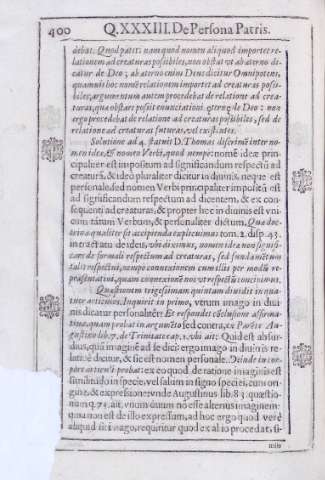 400 Q. XXXIII. De Persona Patris.
debat. Quod patet: nam quod nomen aliquod importet re-
lationem ad creaturas possibiles, non obstat vt ab aterno di-
catur de Deo; ab aterno enim Deus dicitur Omnipotens,
quamuis hoc nomẽ relationem importet ad creaturas possi-
biles, argumentum autem procedebat de relatione ad crea-
turas, qua obstare possit enunciationi æterna de Deo: non
ergo procedebat de relatione ad creaturas possibiles, sed de
relatione ad creaturas futuras, vel existentes.
Solutione ad 4. statuit D. Thomas discrimẽ inter no-
men idea, & nomen Verbi, quod nempe: nomẽ idea prin-
cipaliter est impositum ad significandum respectũ ad
creaturã, & ideò pluraliter dicitur in diuinis, neque est
personale; sed nomen Verbi principaliter impositũ est
ad significandum respectum ad dicentem, & ex con-
sequenti ad creaturas, & propter hoc in diuinis est vni-
cum tãtum Verbum, & personaliter dictum. Qua doc-
trina qualiter sit accipienda explicuimus tom. 2. disp. 43.
in tractatu de ideis, vbi diximus, nomen idea non signifi-
care de formali respectum ad creaturas, sed fundamẽtum
talis respectus, nempe connexionem cum illis per modũ re-
præsentatiui, quam connexionẽ nos vt respectũ concipimus.
Quæstionem trigesimam quintam diuidit in du-
tuor articulos. Inquirit in primo, vtrum imago in diui
nis dicatur personaliter? Et respondet cõclusione affirma-
tiua, quam probat in argumẽto sed contra, ex Patre Au-
gustino lib. 7. de Trinitate cap. 1. vbi ait: Quid est absur-
dius, quã imaginẽ ad se dici? ergo imago in diuinis re-
latiuè dicitur, & sic est nomen personale. Deinde in cor-
pore articuli probat: ex eo quod de ratione imaginis est
similitudo in specie, vel saltim in signo speciei, cum ori-
gine, & expresione: vnde Augustinus lib. 83. quæstio-
num q. 74. ait, vnum ouum nõ esse alterius imaginem:
quia non est de illo expressum, ad hoc ergo quod verè
aliquid sit imago, requiritur quod ex alio procedat, si-
mile